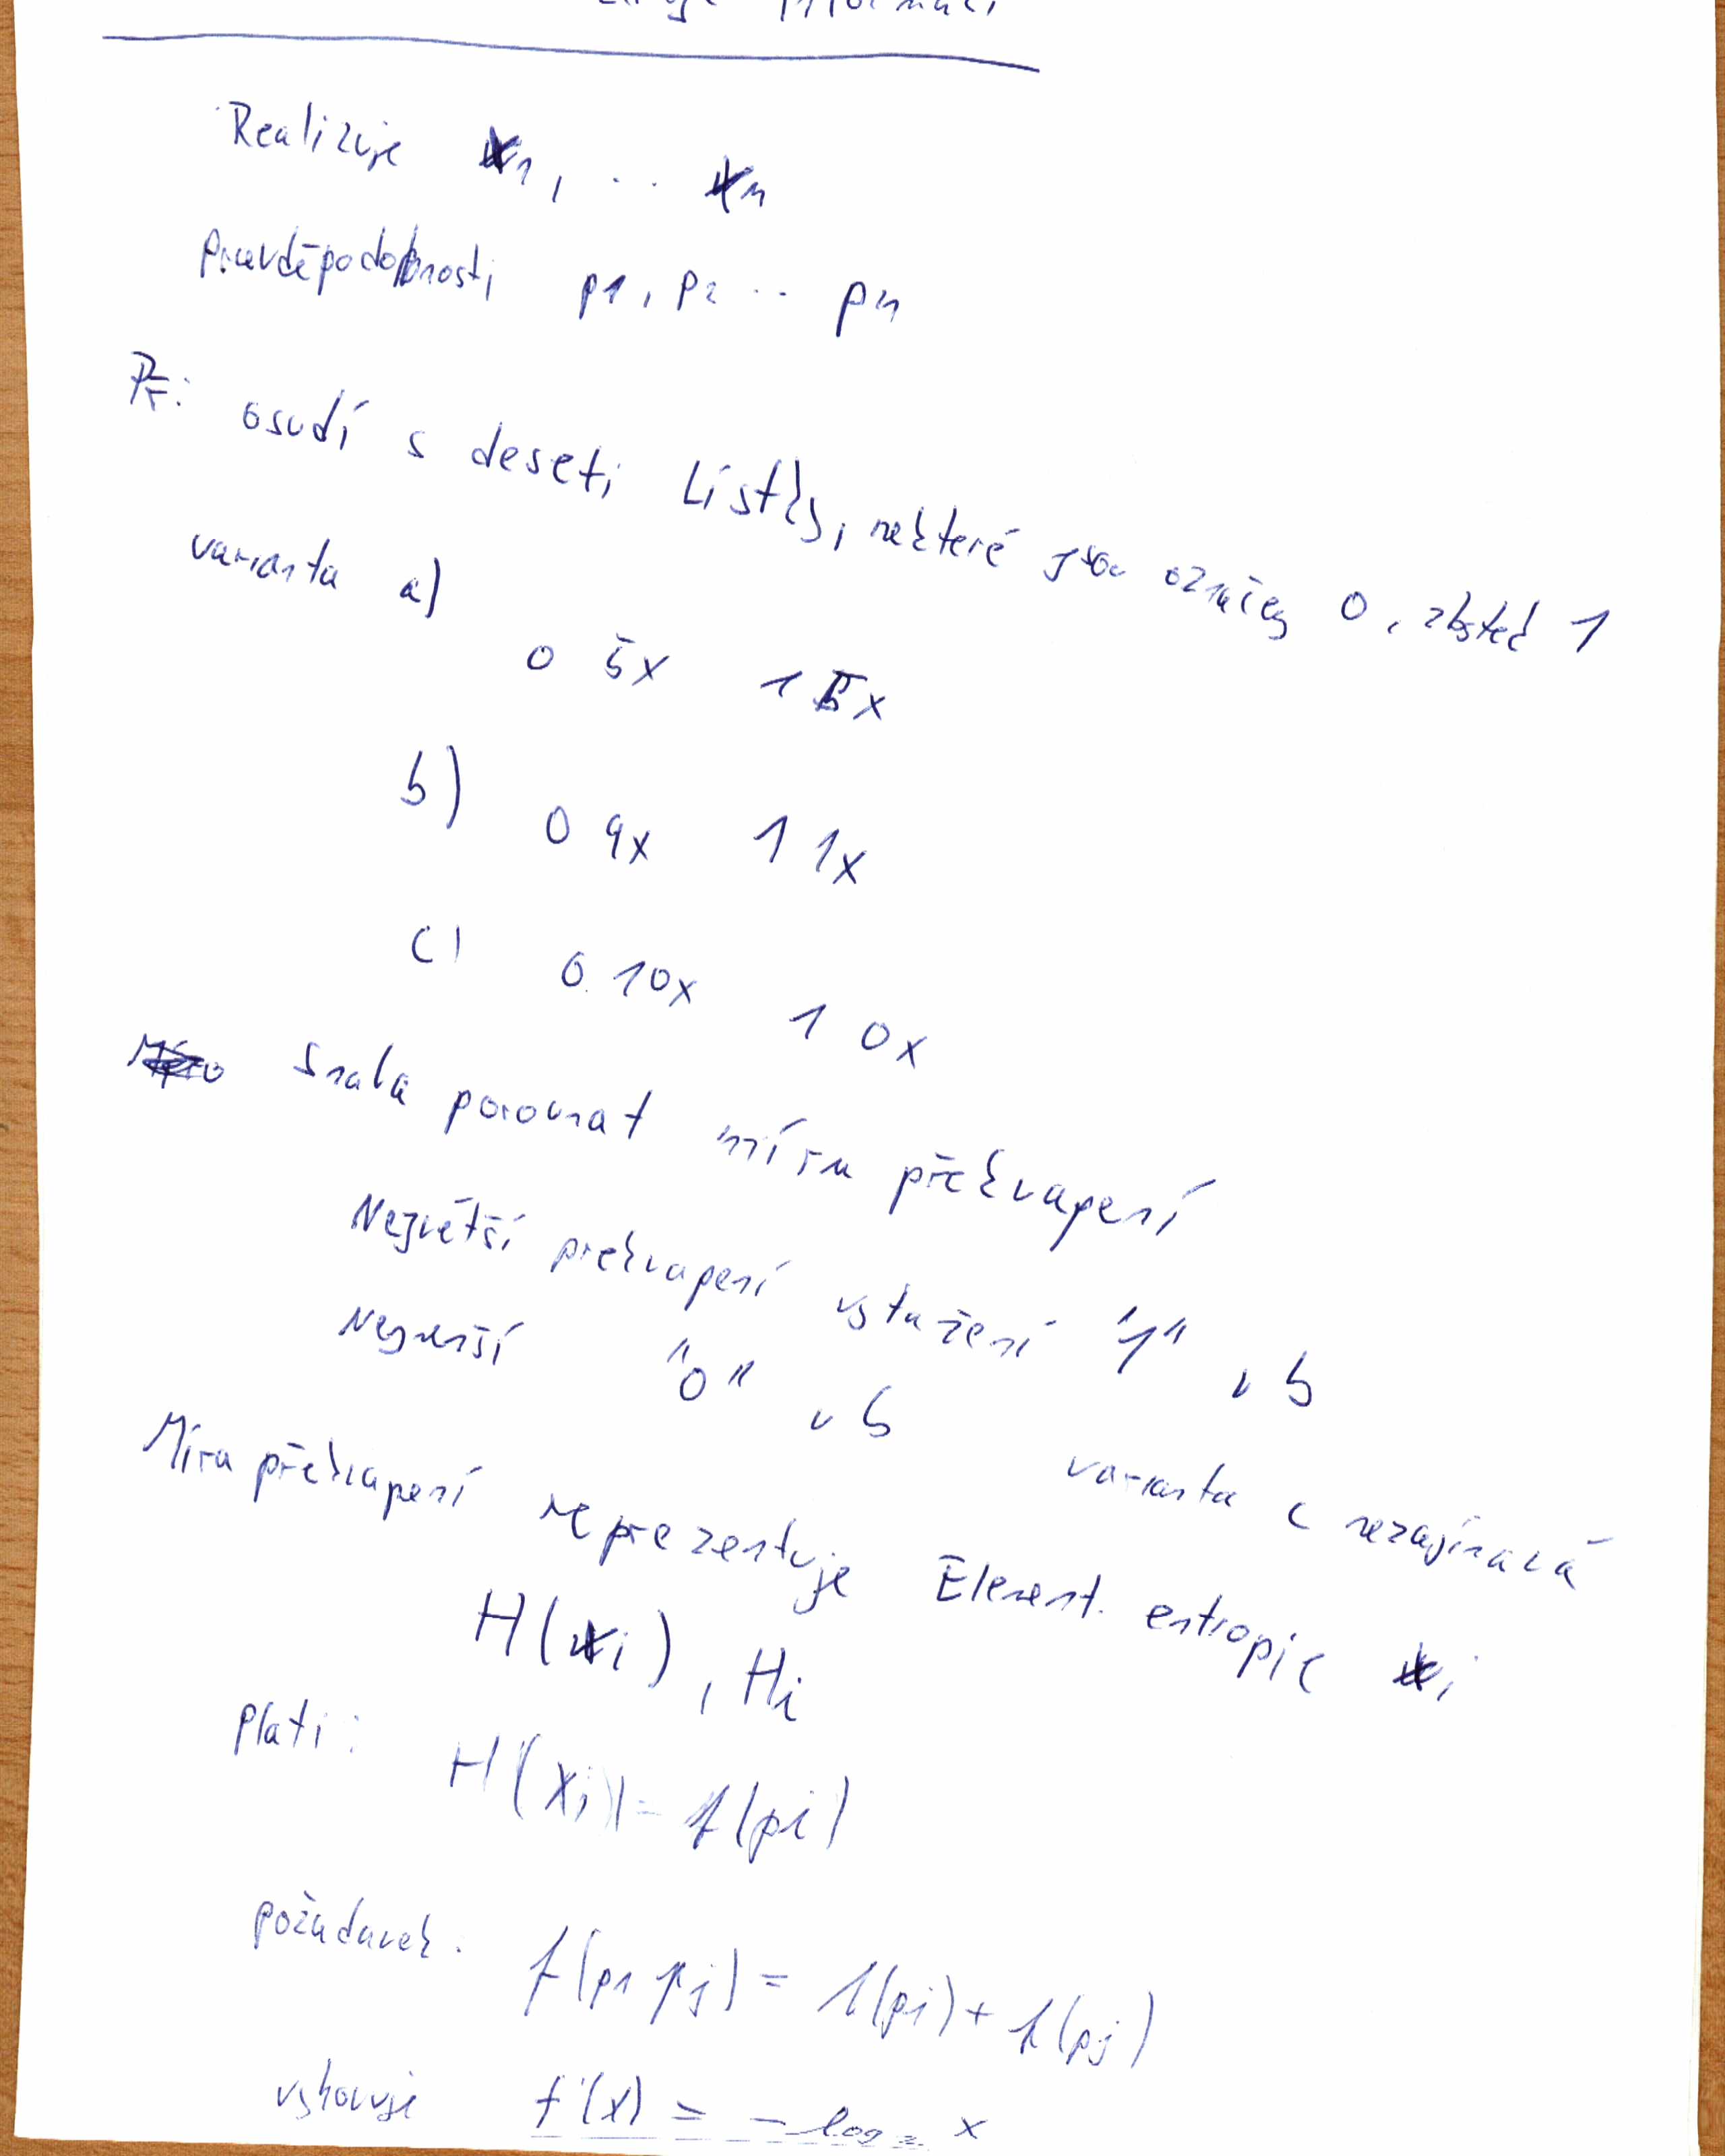 informací
Realizuje x1, .. xn
pravděpodobnosti p1, p2 .. pn
Př: osudí s deseti lístky, nekteré jsou označeny 0, zbytek 1
varianta a)
0 5x 1 5x
b) 0 9x 1 1x
c) 0 10x 1 0x
Snaha porovnat míru překvapení
Největší prekvapení vytažení "1" v b
Nejmenší "0" v b
varianta c nezajímavá
Míra překvapení reprezentuje Element. entropie xi
H(xi), Hi
Plati: H(xi) = f(pi)
požadavek: f(pi pj) = f(pi) + f(pj)
vyhovuje f(x) = - log2 x